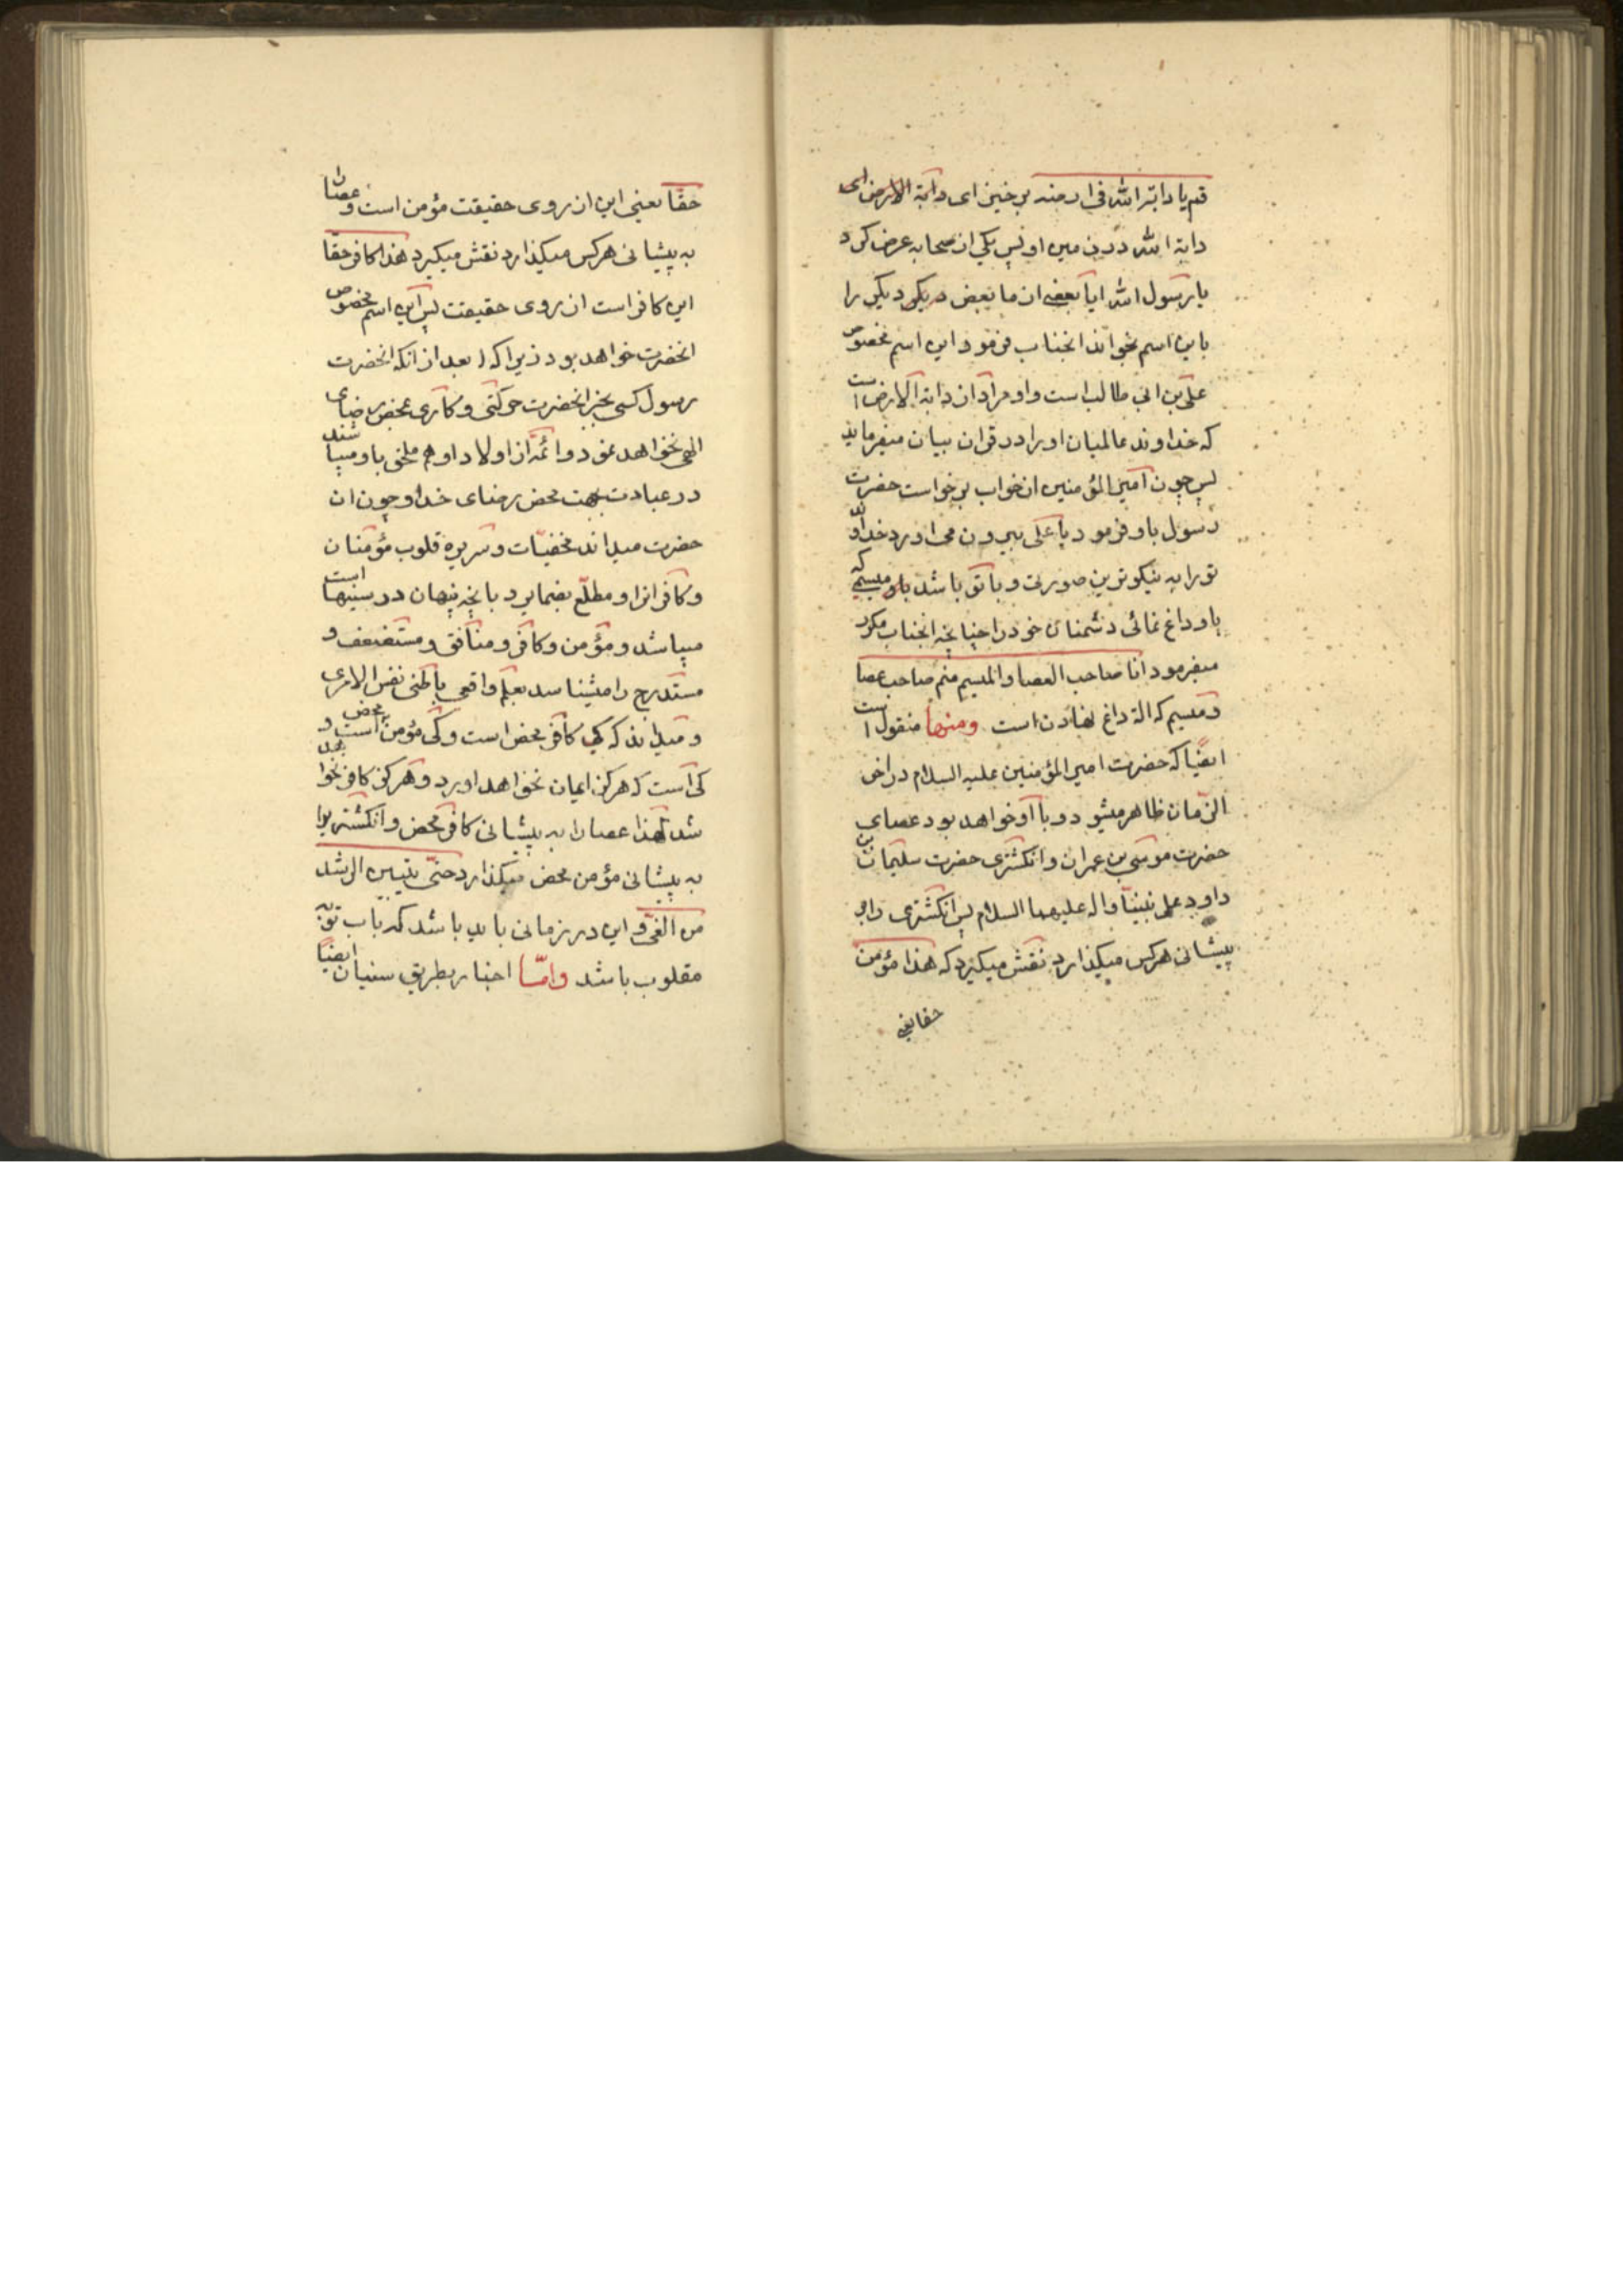 قم یا دابة الله فی ارضه برخیز ای دابة الارض ای
دابة الله در زمین او پس یکی از صحابه عرض کرد
یا رسول الله ایا بعضی از ما بعض دیکر دیکر را
باین اسم بخواند انجناب فرمود این اسم مخصوص
علی بن ابی طالب است و او مراد از دابة الارض است
که خداوند عالمیان او را در قران بیان میفرماید
پس چون امیر المؤمنین از خواب برخواست حضرت
رسول باو فرمود یا علی بیرون می اورد خدا تو
تو را به نیکوترین صورت و با تو باشد میسمی که
باو داغ نمائی دشمنان خود را چنانچه انجناب مکرر
میفرمود انا صاحب العصا و المیسم منم صاحب عصا
و میسم که الة داغ نهادن است ومنها منقول است
ایضًا که حضرت امیر المؤمنین علیه السلام در اخر
الزمان ظاهر میشود و با او خواهد بود عصای
حضرت موسی بن عمران و انکشتری حضرت سلیمان بن
داود علی نبینا واله علیهما السلام پس انکشتری را بر
پیشانی هر کس میکذارد نقش میکیرد که هذا مؤمن
حقا یعنی
حقّا یعنی این از روی حقیقت مؤمن است و عصا را
به پیشانی هر کس میکذارد نقش میکیرد هذا کافر حقا
این کافر است از روی حقیقت پس این اسم مخصوص
انحضرت خواهد بود زیرا که بعد از انکه انحضرت
رسول کسی بجز انحضرت حرکتی و کاری بمحض رضای
الهی نخواهد نمود و ائمه از اولاد او هم ملحق باو میباشند
در عبادت بجهت محض رضای خدا و چون ان
حضرت میداند مخفیّات و سریره قلوب مؤمنان
و کافرانرا و مطلع بضمایر و بانچه پنهان در سینها است
میباشد و مؤمن و کافر و منافق و مستضعف و
مستدرج را میشناسد بعلم واقعی باطنی نفس الامری
و میداند که کی کافر محض است و کی مؤمن محض است و
کی است که هرکز ایمان نخواهد اورد و هرکز کافر نخواهد
شد لهذا عصا را به پیشانی کافر محض و انکشتر را
به پیشانی مؤمن محض میکذارد حتّی یتبین الرشد
من الغیّ و این در زمانی باید باشد که باب توبه
مقلوب باشد وامّا اخبار بطریق سنیان ایضًا